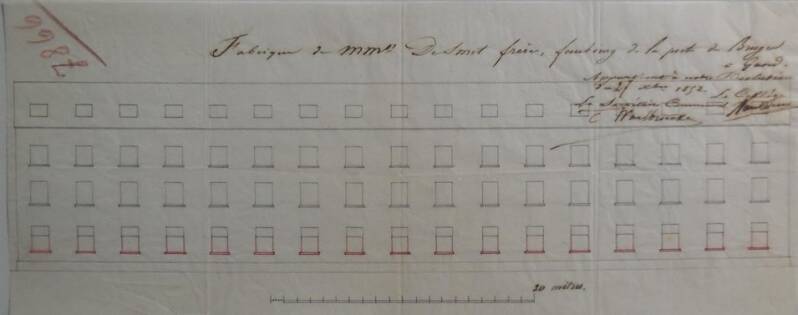 7866
Fabrique de MM.rs De Smet frères, faubourg de la porte de Bruges
à Gand.
Approuvé à notre Résolution
du 27 xbre 1852.
Le Secrétaire Communal Le Collège
20 mètres.